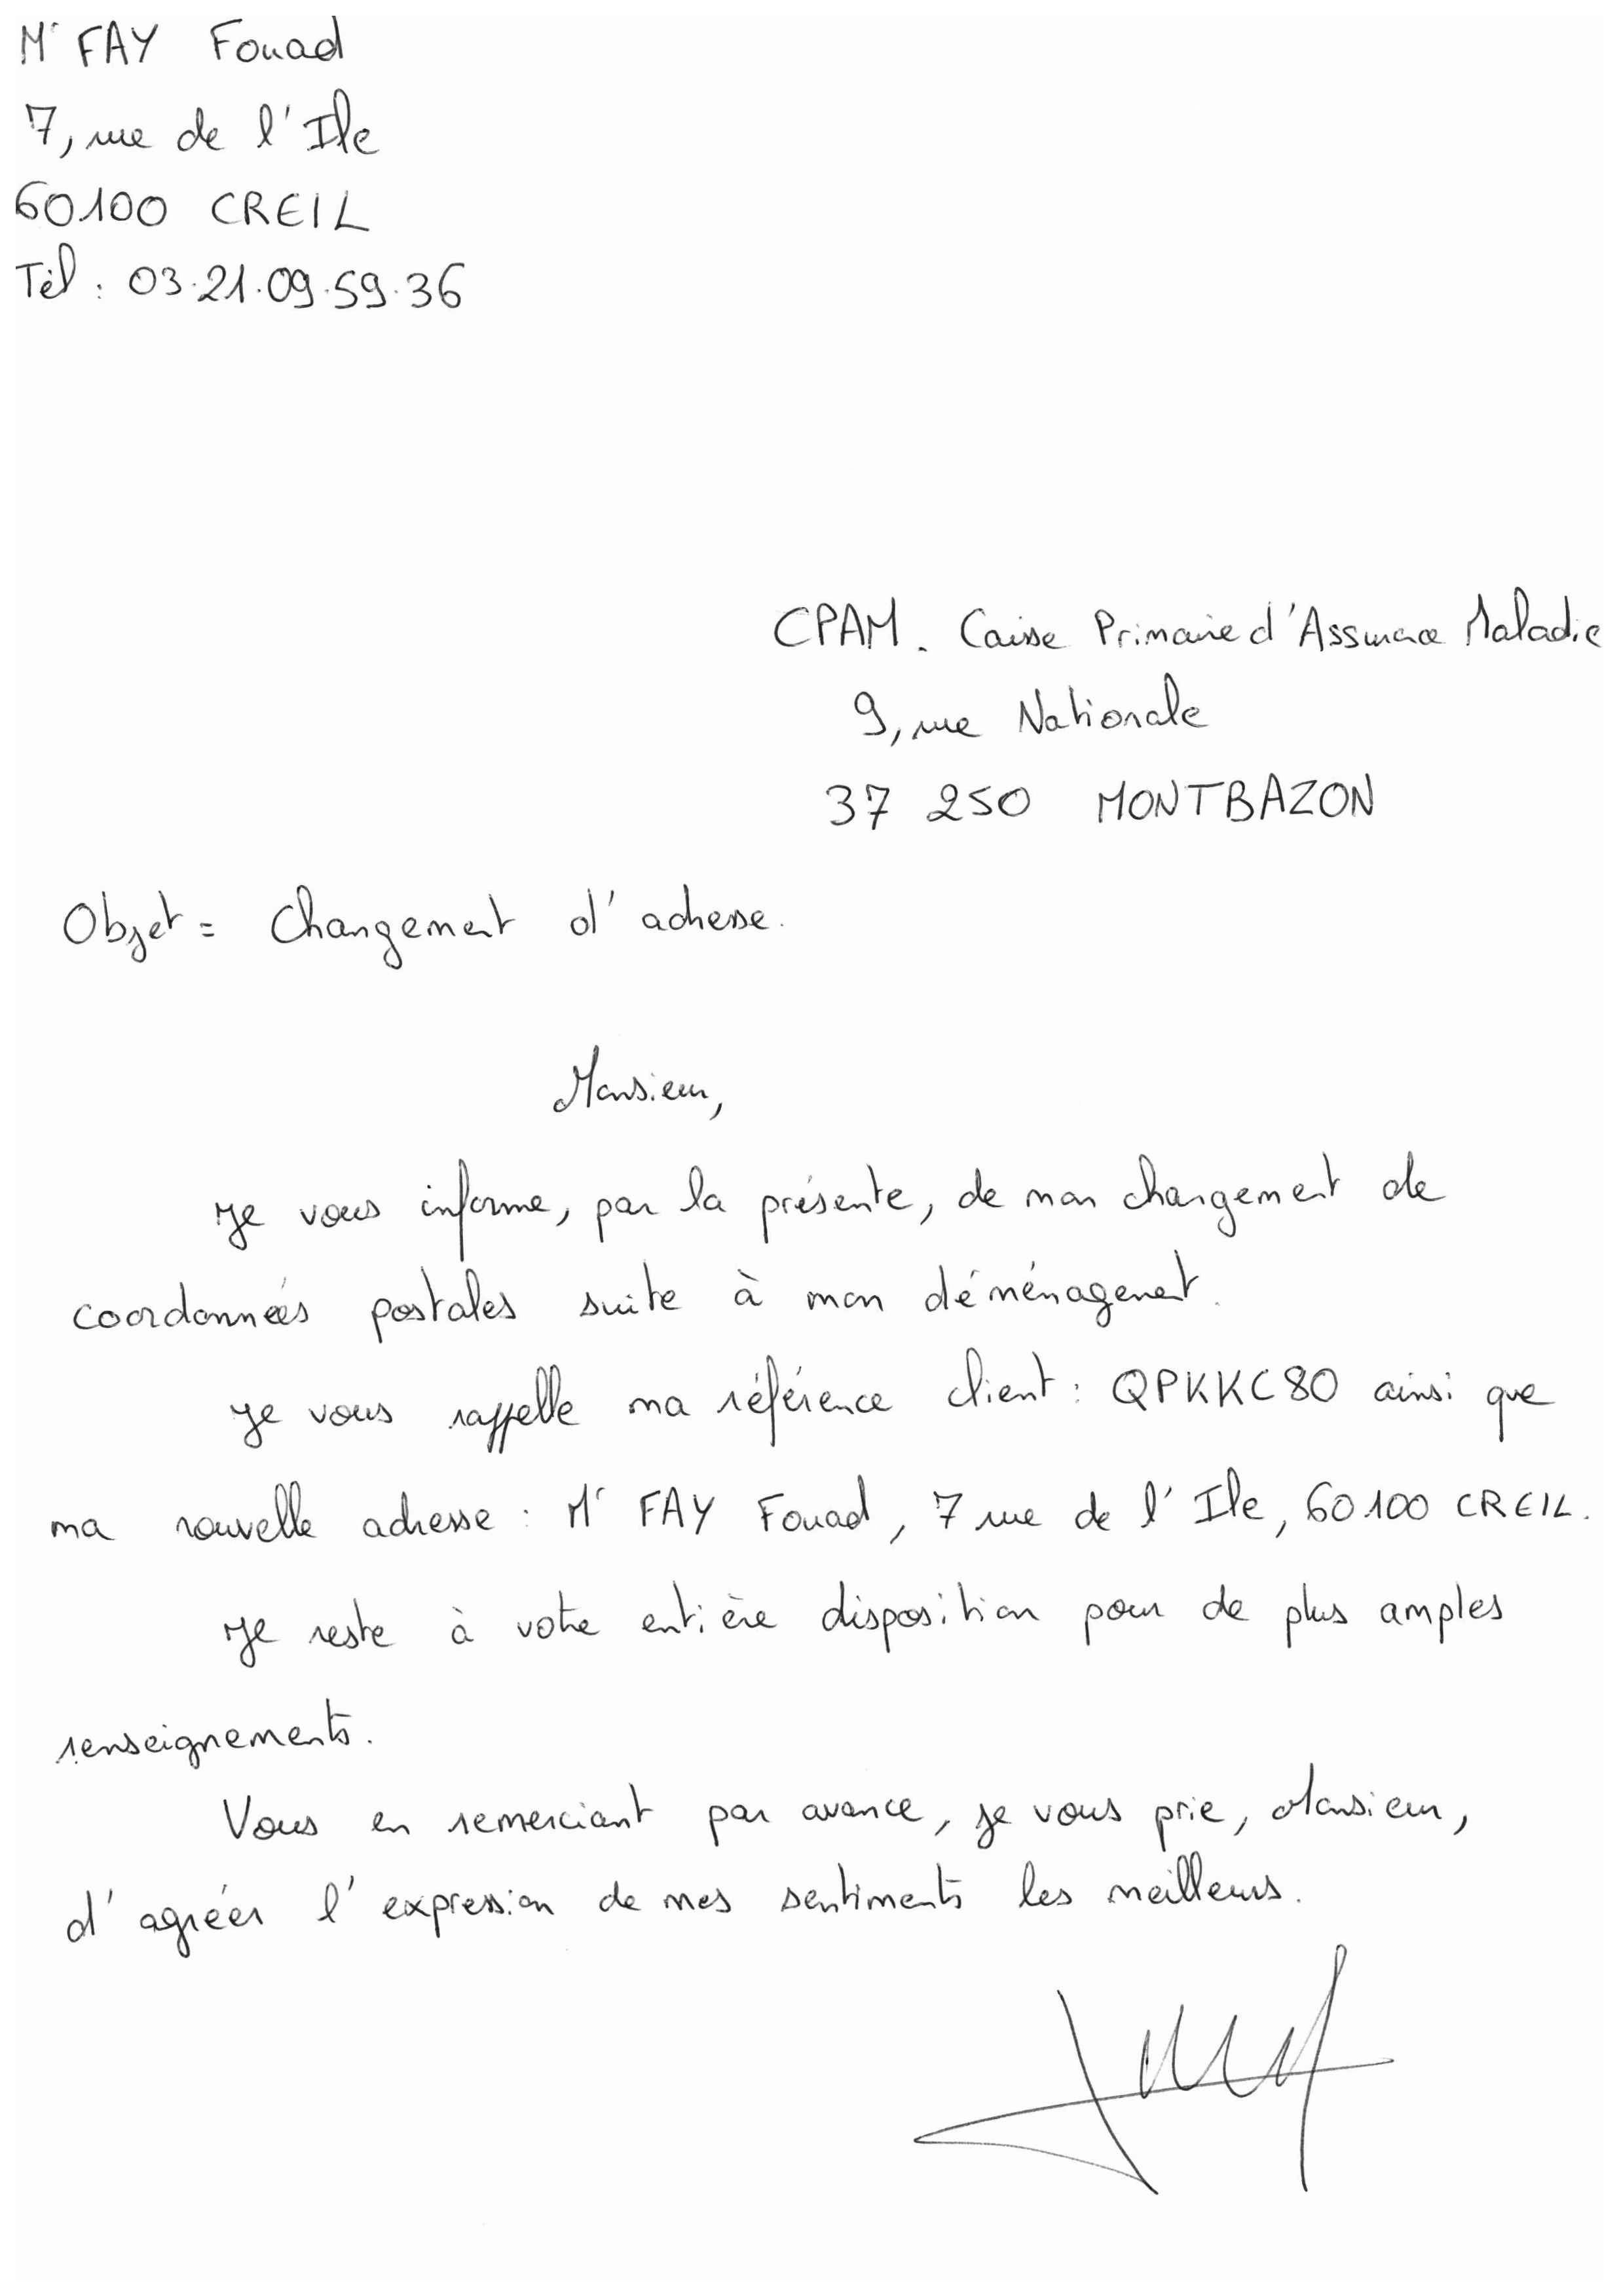 Mr FAY Fouad
7, rue de l'Ile
60100 CREIL
Tél : 03.21.09.59.36
CPAM. Caisse Primaire d'Assurance Maladie
9, rue Nationale
37 250 MONTBAZON
Objet = Changement d'adresse.
Monsieur,
Je vous informe, par la présente, de mon changement de
coordonnées postales suite à mon déménagement.
Je vous rappelle ma référence client : QPKKC80 ainsi que
ma nouvelle adresse : Mr FAY Fouad, 7 rue de l'Ile, 60100 CREIL.
Je reste à votre entière disposition pour de plus amples
renseignements.
Vous en remerciant par avance, je vous prie, Monsieur,
d'agréer l'expression de mes sentiments les meilleurs.